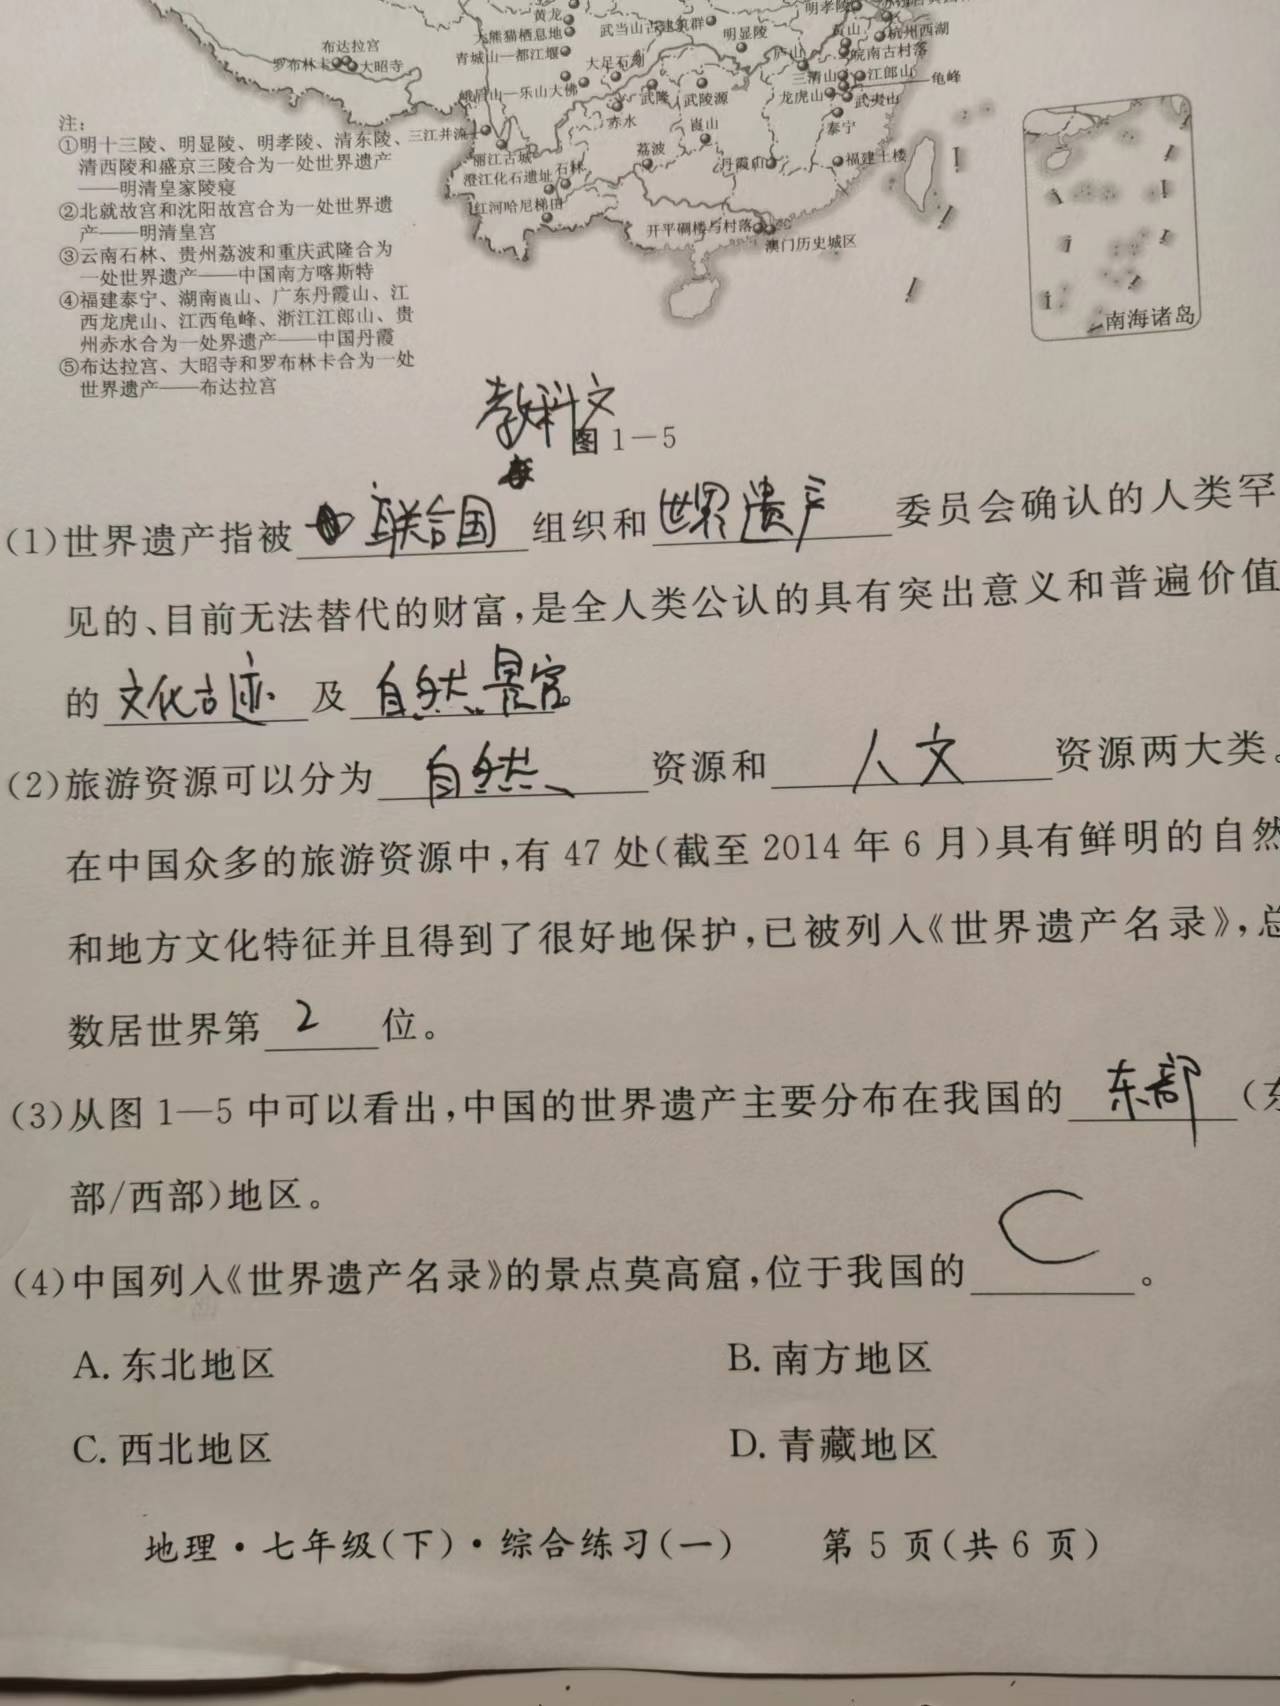 黄龙
明孝陵
大熊猫栖息地
武当山古建筑群
明显陵
黄山
杭州西湖
布达拉宫
青城山—都江堰
庐山
皖南古村落
罗布林卡
大昭寺
大足石刻
三清山
江郎山
龟峰
峨眉山—乐山大佛
武隆
武陵源
龙虎山
武夷山
赤水
崀山
泰宁
三江并流
丽江古城
荔波
丹霞山
福建土楼
澄江化石遗址
石林
红河哈尼梯田
开平碉楼与村落
澳门历史城区
南海诸岛
注:
①明十三陵、明显陵、明孝陵、清东陵、
清西陵和盛京三陵合为一处世界遗产
——明清皇家陵寝
②北就故宫和沈阳故宫合为一处世界遗
产——明清皇宫
③云南石林、贵州荔波和重庆武隆合为
一处世界遗产——中国南方喀斯特
④福建泰宁、湖南崀山、广东丹霞山、江
西龙虎山、江西龟峰、浙江江郎山、贵
州赤水合为一处界遗产——中国丹霞
⑤布达拉宫、大昭寺和罗布林卡合为一处
世界遗产——布达拉宫
教科文
图 1—5
(1)世界遗产指被 联合国 组织和 世界遗产 委员会确认的人类罕
见的、目前无法替代的财富,是全人类公认的具有突出意义和普遍价值
的 文化古迹 及 自然景官。
(2)旅游资源可以分为 自然 资源和 人文 资源两大类。
在中国众多的旅游资源中,有 47 处(截至 2014 年 6 月)具有鲜明的自然
和地方文化特征并且得到了很好地保护,已被列入《世界遗产名录》,总
数居世界第 2 位。
(3)从图 1—5 中可以看出,中国的世界遗产主要分布在我国的 东部 (东
部/西部)地区。
(4)中国列入《世界遗产名录》的景点莫高窟,位于我国的 C 。
A. 东北地区 B. 南方地区
C. 西北地区 D. 青藏地区
地理·七年级(下)·综合练习(一) 第 5 页(共 6 页)